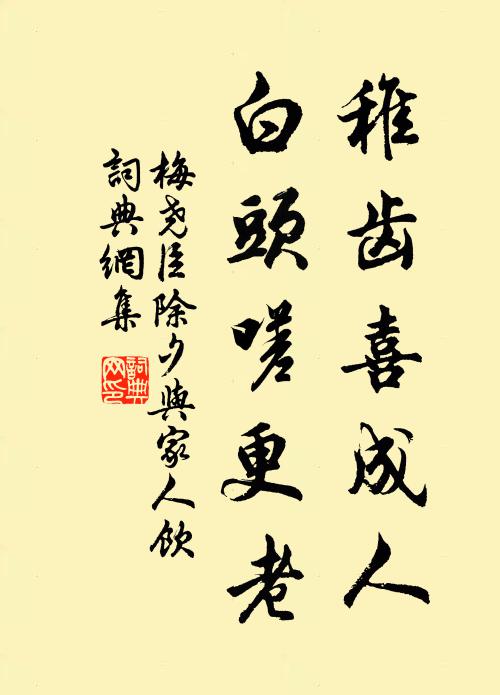 稚齿喜成人
白頭嗟更老
梅尧臣除夕與家人飲
詞典網集
詞典
网印